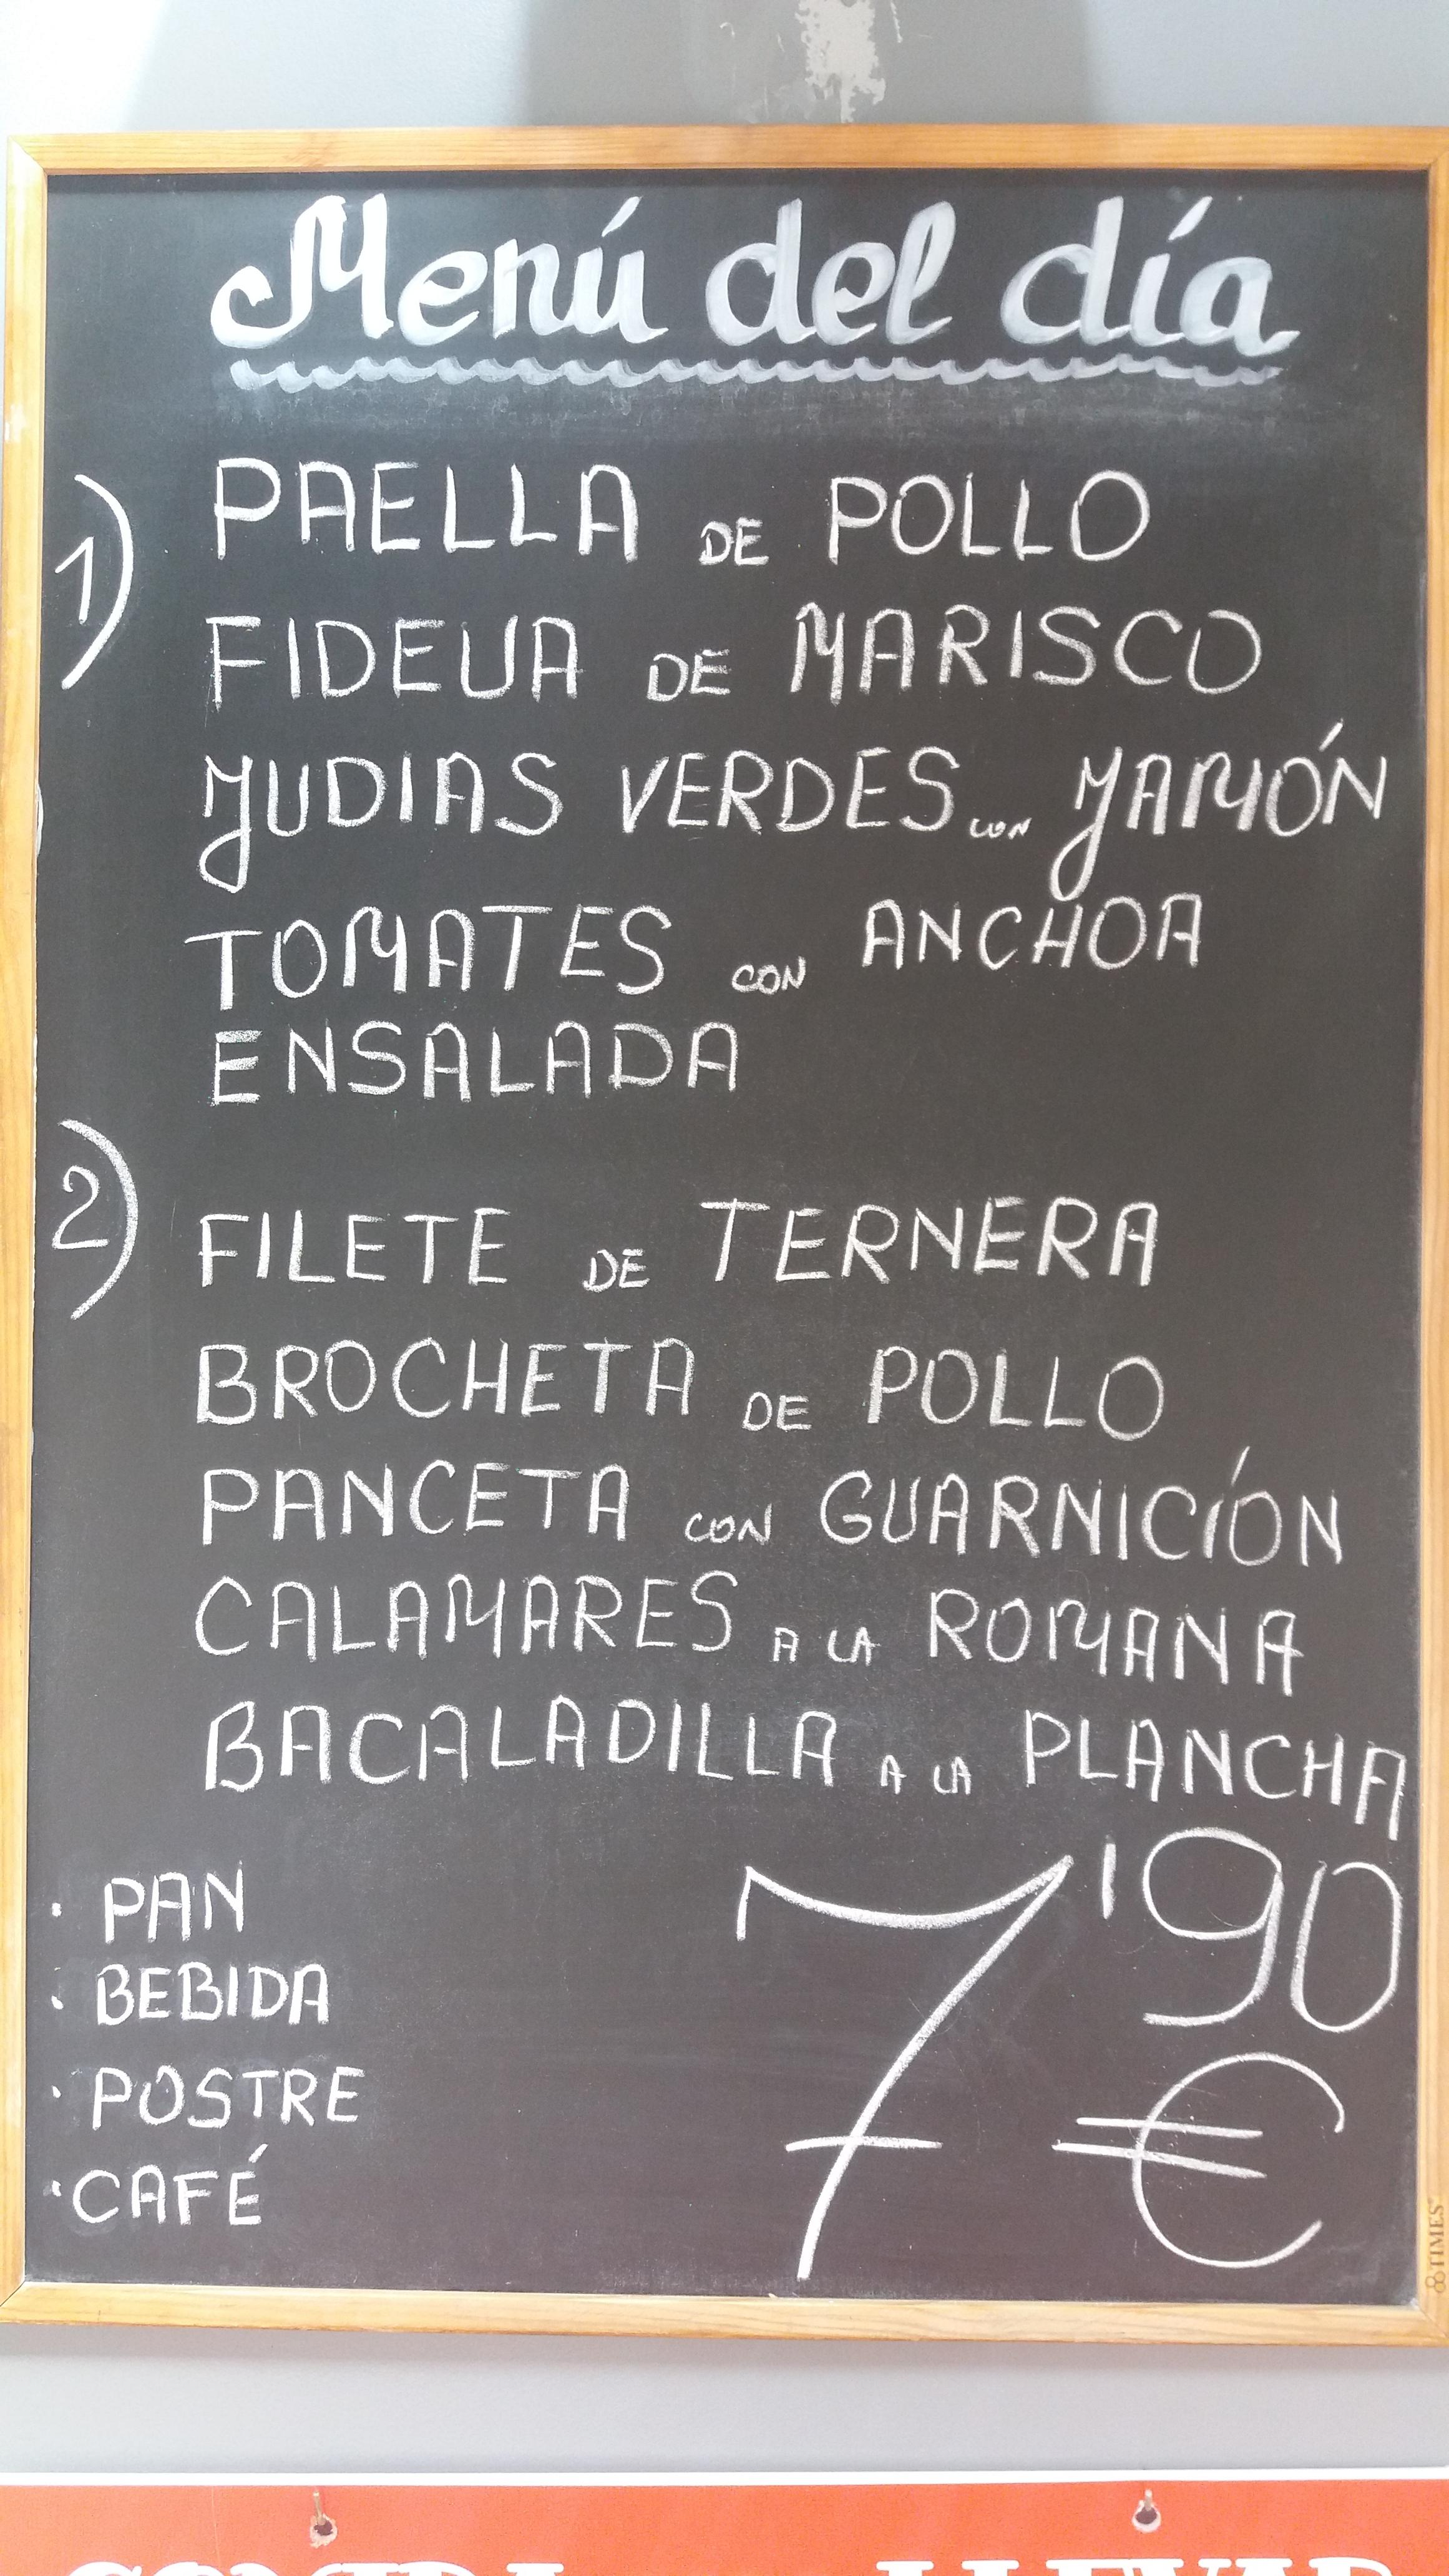 Menú del día
1)
PAELLA DE POLLO
FIDEUA DE MARISCO
JUDIAS VERDES CON JAMÓN
TOMATES CON ANCHOA
ENSALADA
2)
FILETE DE TERNERA
BROCHETA DE POLLO
PANCETA CON GUARNICÍON
CALAMARES A LA ROMANA
BACALADILLA A LA PLANCHA
· PAN
· BEBIDA
· POSTRE
· CAFÉ
7'90
€
TIMES